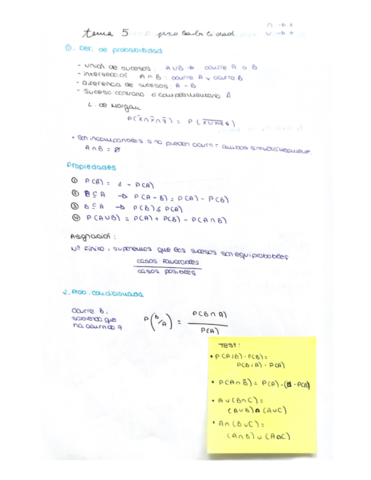 tema 5 probabilidad
1. Def. de probabilidad
- unión de sucesos: A∪B → ocurre A o B
- intersección A∩B: ocurre A y ocurre B
- diferencia de sucesos: A-B
- Suceso contrario o complementario Ā
L. de Morgan
• Son incompatibles si no pueden ocurrir ambos simultáneamente
A∩B = ∅
Propiedades
① P(Ā) = 1 - P(A)
② B⊆A → P(A-B) = P(A) - P(B)
③ B⊆A → P(B) ≤ P(A)
④ P(A∪B) = P(A) + P(B) - P(A∩B)
Asignación:
Nº finito: suponemos que los sucesos son equiprobables
casos favorables
casos posibles
2. Prob. condicionada
ocurre B,
sabiendo que
ha ocurrido A
P(B/A) = P(B∩A)
P(A)
TEST:
• A∪(B∩C) =
(A∪B)∩(A∪C)
• A∩(B∪C) =
(A∩B)∪(A∩C)